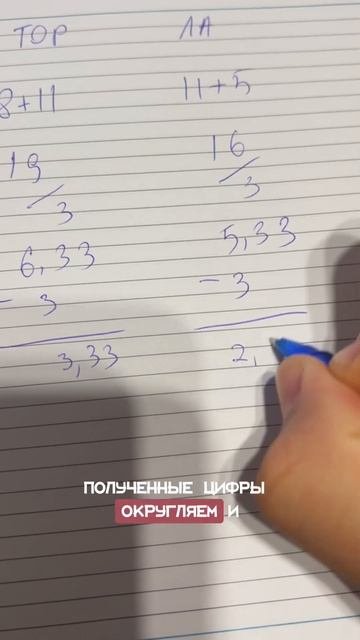 ТОР ЛА
8+11 11+5
19 16
/ /
3 3
6,33 5,33
- 3 - 3
3,33 2,
ПОЛУЧЕННЫЕ ЦИФРЫ
ОКРУГЛЯЕМ И